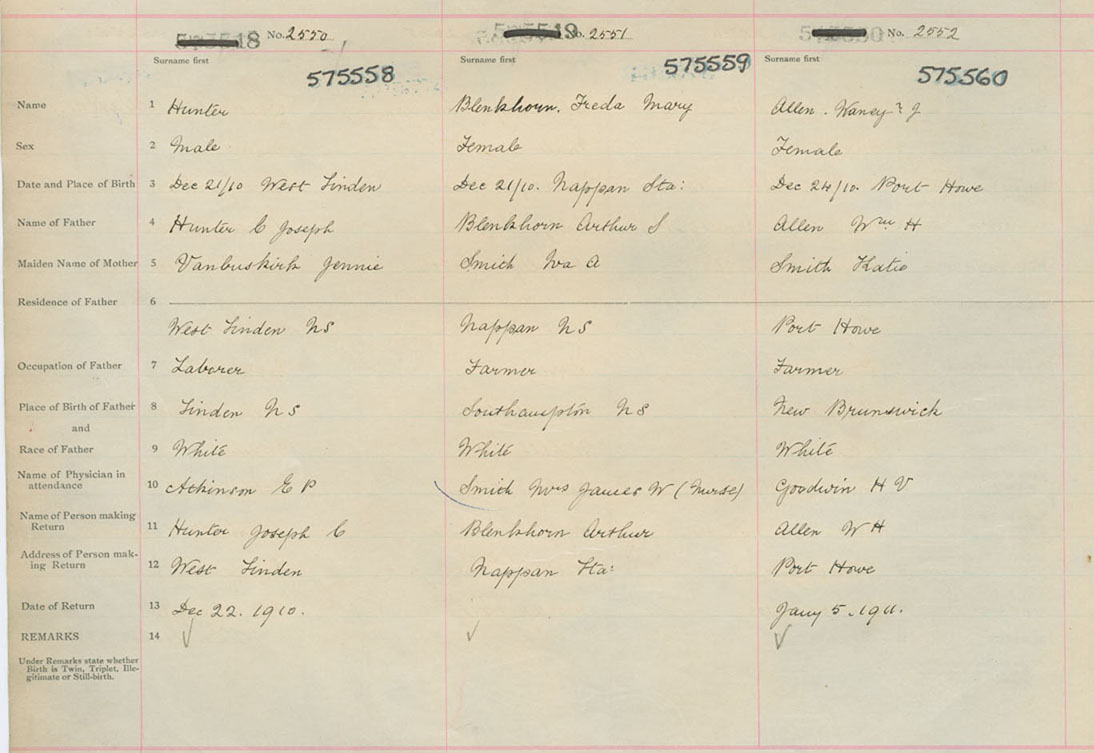 No. 2550 No. 2551 No. 2552
Surname first Surname first Surname first
575558 575559 575560
Name 1 Hunter Blenkhorn. Freda Mary Allen. ? J
Sex 2 Male Female Female
Date and Place of Birth 3 Dec 21/10 West Linden Dec 21/10. Nappan Sta: Dec 24/10. Port Howe
Name of Father 4 Hunter C Joseph Blenkhorn Arthur S Allen Wm H
Maiden Name of Mother 5 Vanbuskirk Jennie Smith A Smith Katie
Residence of Father 6
West Linden NS Nappan NS Port Howe
Occupation of Father 7 Laborer Farmer Farmer
Place of Birth of Father 8 Linden NS Southampton NS New Brunswick
and
Race of Father 9 White White White
Name of Physician in
attendance 10 Atkinson E P Smith Mrs James W (Nurse) Goodwin H V
Name of Person making
Return 11 Hunter Joseph C Blenkhorn Arthur Allen W H
Address of Person mak-
ing Return 12 West Linden Nappan Sta: Port Howe
Date of Return 13 Dec 22. 1910. Jany 5. 1911.
REMARKS 14
Under Remarks state whether
Birth is Twin, Triplet, Ille-
gitimate or Still-birth.